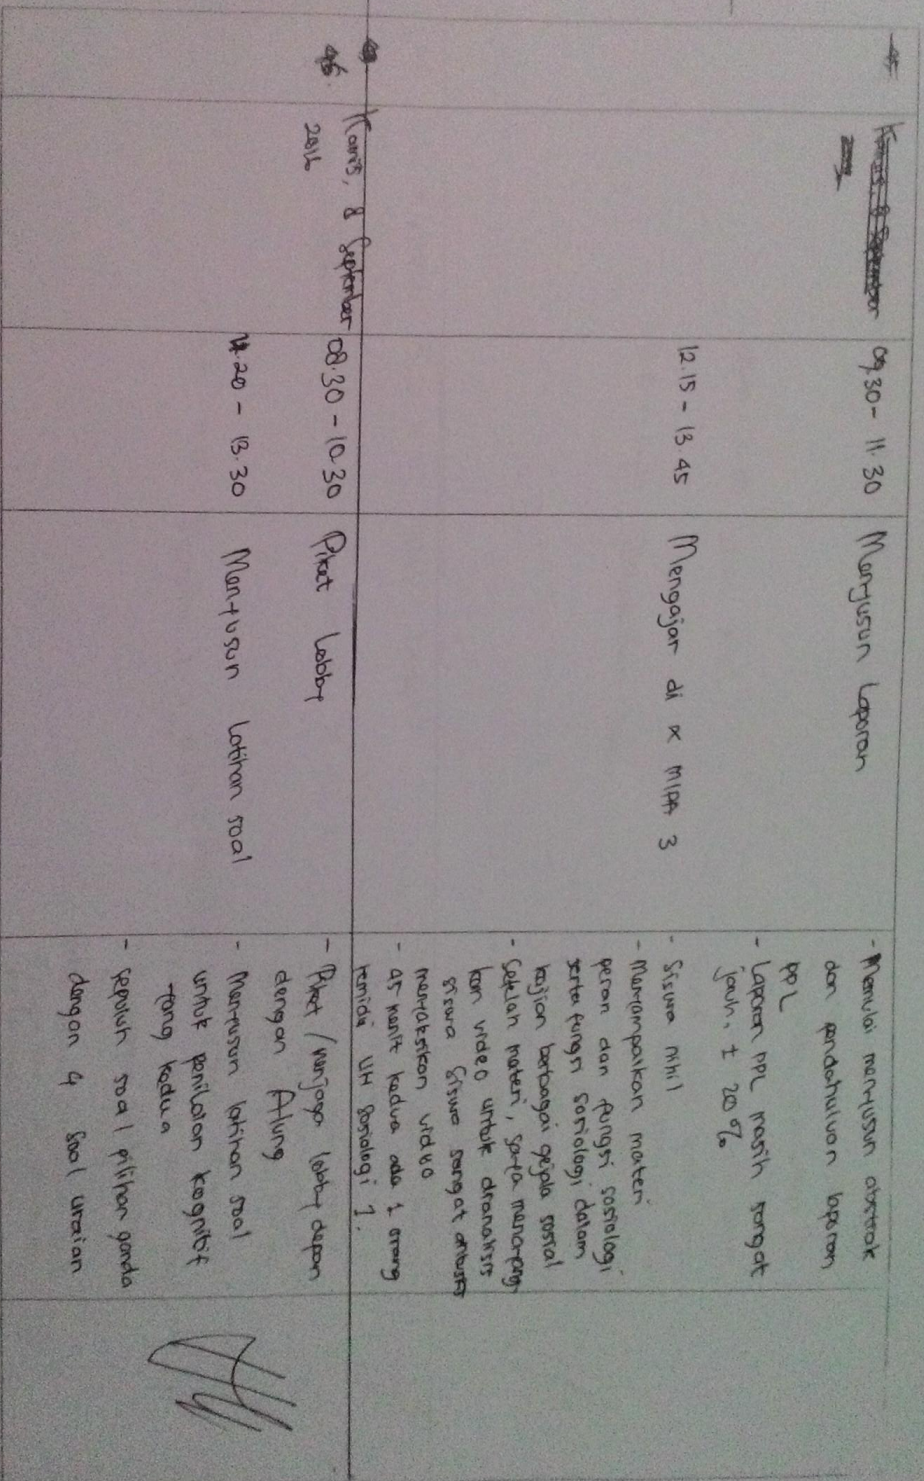 09.30 - 11.30
Menyusun Laporan
- Memulai menyusun abstrak
dan pendahuluan laporan
PPL
- Laporan PPL masih sangat
jauh, ± 20%
12.15 - 13.45
Mengajar di X MIPA 3
- Siswa nihil
- Menyampaikan materi
peran dan fungsi sosiologi
serta fungsi sosiologi dalam
kajian berbagai gejala sosial
- Setelah materi, saya menayang
kan video untuk dianalisis
siswa. Siswa sangat antusias
menyaksikan video
- 45 menit kedua ada 1 orang
remidi UH sosiologi 1.
Kamis, 8 September
2016
08.30 - 10.30
Piket Lobby
- Piket / menjaga lobby depan
dengan Alung
.20 - 13.30
Menyusun latihan soal
- Menyusun latihan soal
untuk penilaian kognitif
yang kedua
- sepuluh soal pilihan ganda
dengan 4 soal uraian